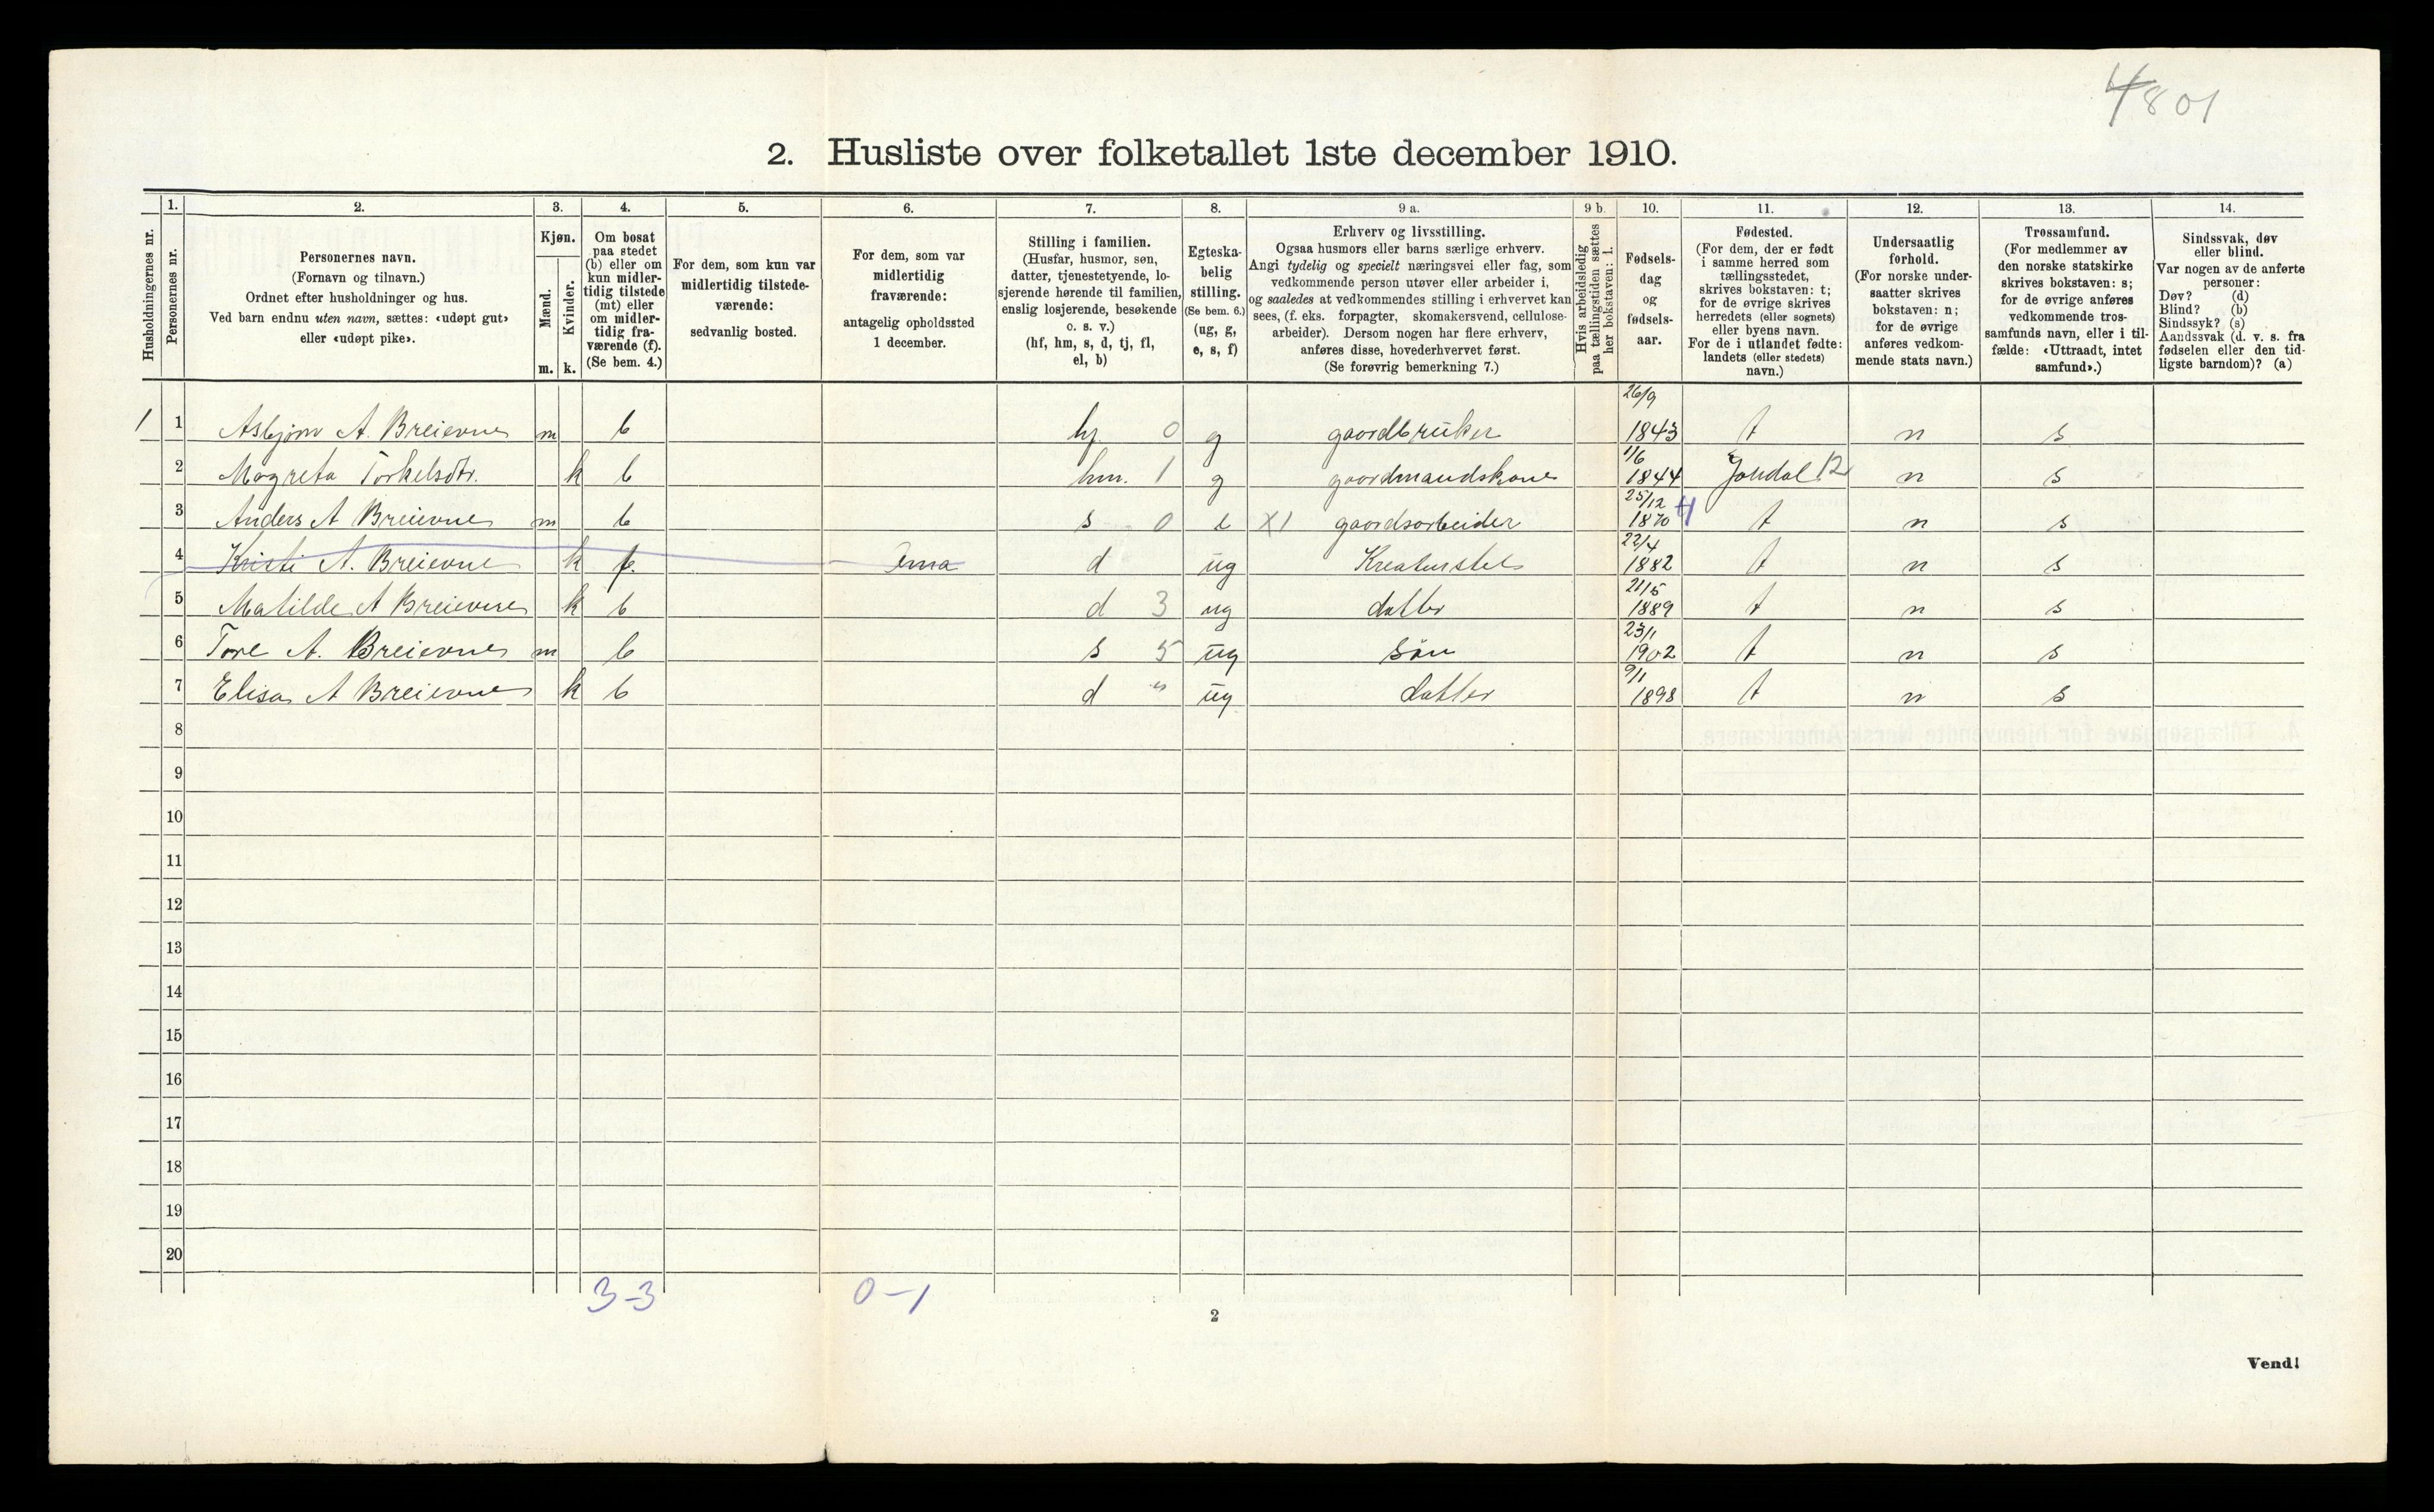 4801
2. Husliste over folketallet 1ste december 1910.
Husholdningernes nr.
1.
Personernes nr.
2.
Personernes navn.
(Fornavn og tilnavn.)
Ordnet efter husholdninger og hus.
Ved barn endnu uten navn, sættes: «udøpt gut»
eller «udøpt pike».
3.
Kjøn.
Mænd.
Kvinder.
m. k.
4.
Om bosat
paa stedet
(b) eller om
kun midler-
tidig tilstede
(mt) eller
om midler-
tidig fra-
værende (f).
(Se bem. 4.)
5.
For dem, som kun var
midlertidig tilstede-
værende:
sedvanlig bosted.
6.
For dem, som var
midlertidig
fraværende:
antagelig opholdssted
1 december.
7.
Stilling i familien.
(Husfar, husmor, søn,
datter, tjenestetyende, lo-
sjerende hørende til familien,
enslig losjerende, besøkende
o. s. v.)
(hf, hm, s, d, tj, fl,
el, b)
8.
Egteska-
belig
stilling.
(Se bem. 6.)
(ug, g,
e, s, f)
9 a.
Erhverv og livsstilling.
Ogsaa husmors eller barns særlige erhverv.
Angi tydelig og specielt næringsvei eller fag, som
vedkommende person utøver eller arbeider i,
og saaledes at vedkommendes stilling i erhvervet kan
sees, (f. eks. forpagter, skomakersvend, cellulose-
arbeider). Dersom nogen har flere erhverv,
anføres disse, hovederhvervet først.
(Se forøvrig bemerkning 7.)
9 b.
Hvis arbeidsledig
paa tællingstiden sættes
her bokstaven: l.
10.
Fødsels-
dag
og
fødsels-
aar.
11.
Fødested.
(For dem, der er født
i samme herred som
tællingsstedet,
skrives bokstaven: t;
for de øvrige skrives
herredets (eller sognets)
eller byens navn.
For de i utlandet fødte:
landets (eller stedets)
navn.)
12.
Undersaatlig
forhold.
(For norske under-
saatter skrives
bokstaven: n;
for de øvrige
anføres vedkom-
mende stats navn.)
13.
Trossamfund.
(For medlemmer av
den norske statskirke
skrives bokstaven: s;
for de øvrige anføres
vedkommende tros-
samfunds navn, eller i til-
fælde: «Uttraadt, intet
samfund».)
14.
Sindssvak, døv
eller blind.
Var nogen av de anførte
personer:
Døv? (d)
Blind? (b)
Sindssyk? (s)
Aandssvak (d. v. s. fra
fødselen eller den tid-
ligste barndom)? (a)
1 1 Asbjørn A. Breievne m b hf 0 g gaardbruker 26/9 1843 t n s
2 Magreta Torkelsdtr. k b hm. 1 g gaardmandskone 1/6 1844 Jondal 12 n s
3 Anders A Breievne m b s 0 e X1 gaardsarbeider 25/12 1870 4 t n s
4 Kristi A. Breievne k f. d ug Kreaturstel 22/4 1882 t n s
5 Matilde A Breievne k b d 3 ug datter 21/5 1889 t n s
6 Tore A. Breievne m b s 5 ug søn 23/1 1902 t n s
7 Elisa A Breievne k b d " ug datter 9/1 1898 t n s
8
9
10
11
12
13
14
15
16
17
18
19
20
3-3 0-1
2
Vend!